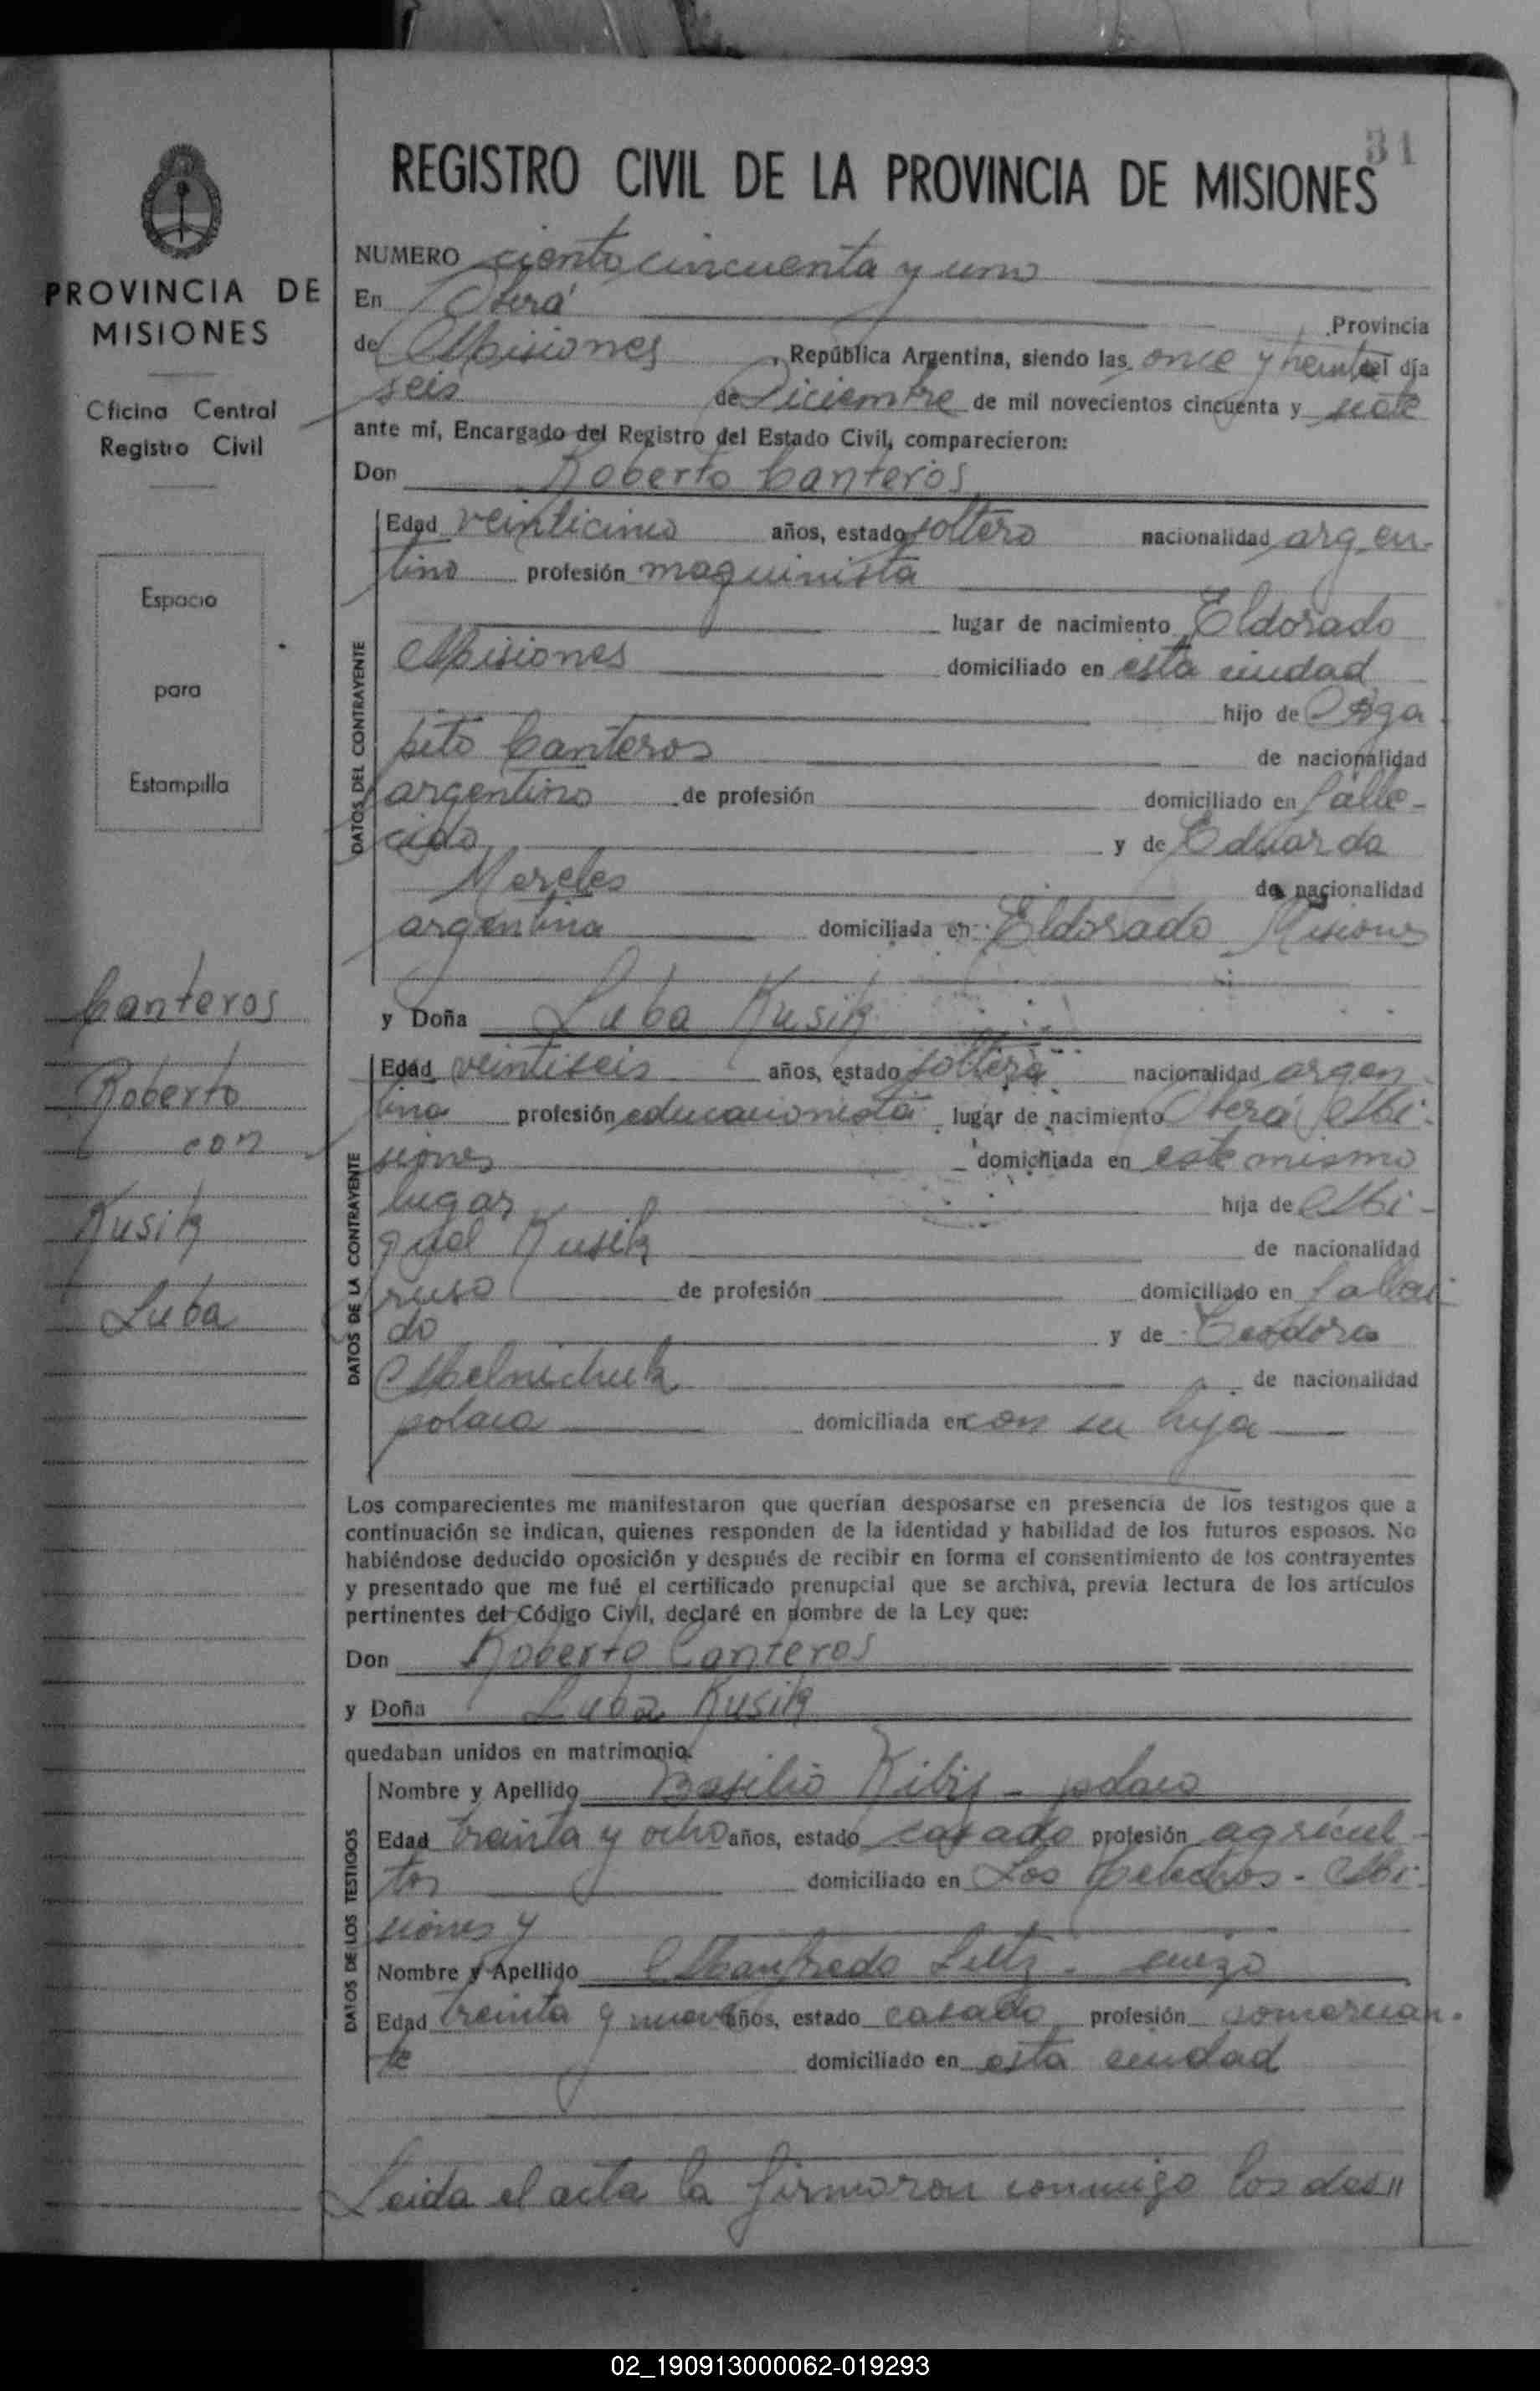 31
REGISTRO CIVIL DE LA PROVINCIA DE MISIONES
PROVINCIA DE
MISIONES
Oficina Central
Registro Civil
Espacio
para
Estampilla
Canteros
Roberto
con
Kusik
Luba
NUMERO ciento cincuenta y uno
En Oberá Provincia
de Misiones, República Argentina, siendo las once y treinta del día
seis de Diciembre de mil novecientos cincuenta y siete
ante mí, Encargado del Registro del Estado Civil, comparecieron:
Don Roberto Canteros
DATOS DEL CONTRAYENTE
Edad veinticinco años, estado soltero nacionalidad argen-
tino profesión maquinista
lugar de nacimiento Eldorado
Misiones domiciliado en esta ciudad
hijo de Aga
pito Canteros de nacionalidad
argentino de profesión domiciliado en falle-
cido y de Eduarda
Mereles de nacionalidad
argentina domiciliada en Eldorado Misiones
y Doña Luba Kusik
DATOS DE LA CONTRAYENTE
Edad veintiseis años, estado soltera nacionalidad argen
tina profesión educacionista lugar de nacimiento Oberá Mi-
siones domiciliada en este mismo
lugar hija de Mi-
guel Kusik de nacionalidad
ruso de profesión domiciliado en falleci
do y de Teodora
Melnichuk de nacionalidad
polaca domiciliada en con su hija
Los comparecientes me manifestaron que querían desposarse en presencia de los testigos que a
continuación se indican, quienes responden de la identidad y habilidad de los futuros esposos. No
habiéndose deducido oposición y después de recibir en forma el consentimiento de los contrayentes
y presentado que me fué el certificado prenupcial que se archiva, previa lectura de los artículos
pertinentes del Código Civil, declaré en nombre de la Ley que:
Don Roberto Canteros
y Doña Luba Kusik
quedaban unidos en matrimonio.
DATOS DE LOS TESTIGOS
Nombre y Apellido Basilio Kibiz - polaco
Edad treinta y ocho años, estado casado profesión agricul-
tor domiciliado en Los Helechos - Mi-
siones y
Nombre y Apellido Manfredo Lutz - suizo
Edad treinta y nueve años, estado casado profesión comercian-
te domiciliado en esta ciudad
Leida el acta la firmaron conmigo los des"
02_190913000062-019293